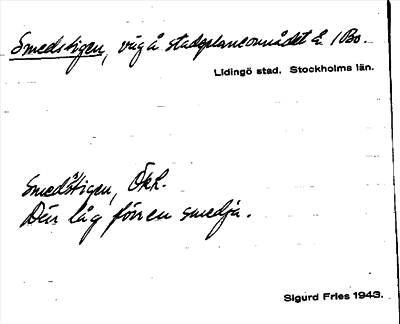 Smedstigen, väg å stadsplaneområdet å /Bo.
Lidingö stad. Stockholms län.
Smedstigen, ÖkR.
Där låg förr en smedja.
Sigurd Fries 1943.